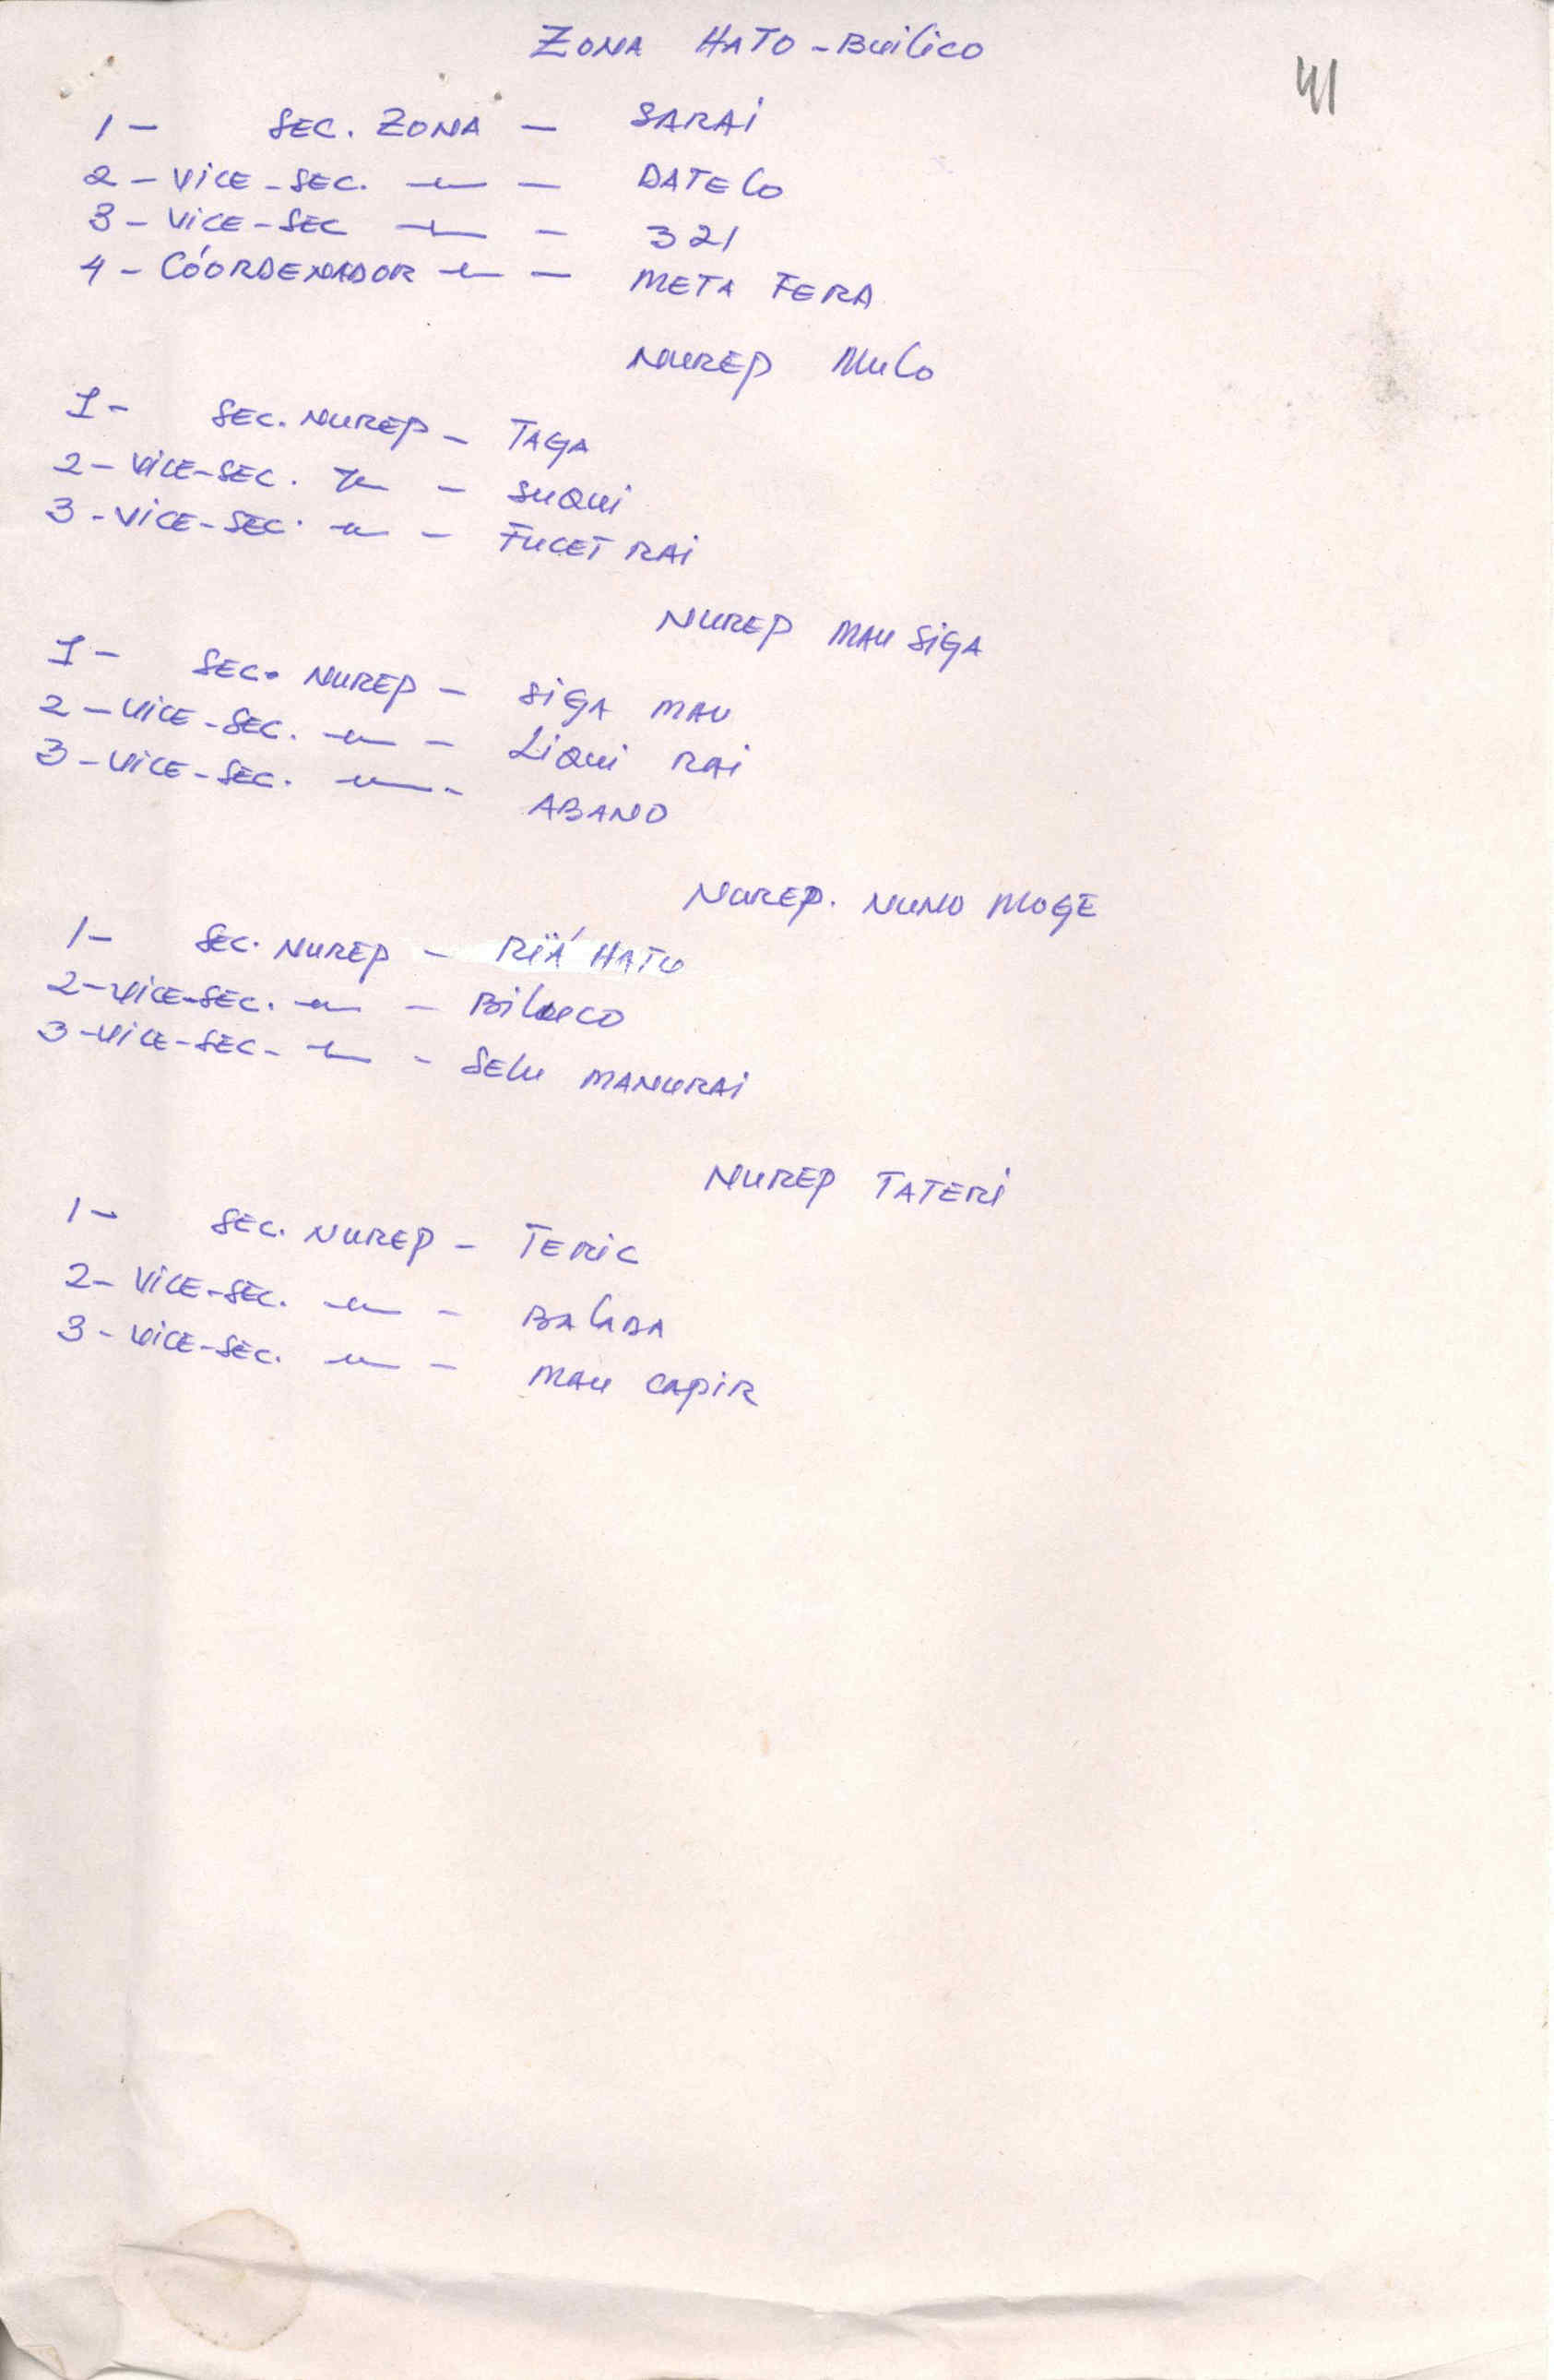 ZONA HATO-BUILICO
41
1- SEC. ZONA - SARAI
2-VICE-SEC. -〃- - DATELO
3-VICE-SEC -〃- - 321
4-CÓORDENADOR -〃- - META FERA
NUREP MULO
1- SEC. NUREP - TAGA
2-VICE-SEC. -〃- - SUQUI
3-VICE-SEC. -〃- - FUCET RAI
NUREP MAU SIGA
1- SEC. NUREP - SIGA MAU
2-VICE-SEC. -〃- - LIQUI RAI
3-VICE-SEC. -〃- - ABANO
NUREP. NUNO MOGE
1- SEC. NUREP - RÏÁ HATU
2-VICE-SEC. -〃- - BILUCO
3-VICE-SEC- -〃- - SELU MANURAI
NUREP TATERI
1- SEC. NUREP - TERIC
2-VICE-SEC. -〃- -
3-VICE-SEC. -〃- - MAU CAPIR